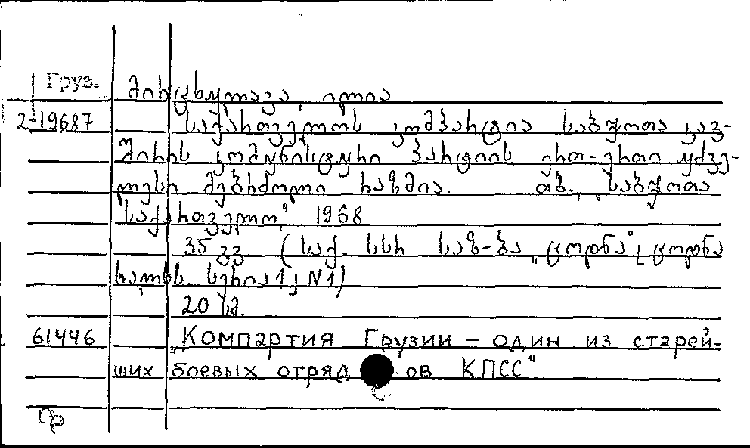 Груз.
მირცხულავა, ილია
2-19687 საქართველოს კომპარტია საბჭოთა კავ-
შირის კომუნისტური პარტიის ერთ-ერთი უძვე-
ლესი მებრძოლი რაზმია. თბ., „საბჭოთა
საქართველო“, 1968
35 გვ. (საქ. სსრ საზ-ბა „ცოდნა“ ცოდნა
ხალხს. სერია 1; N1)
20 კ.
61446 „Компартия Грузии – один из старей-
ших боевых отрядов КПСС“